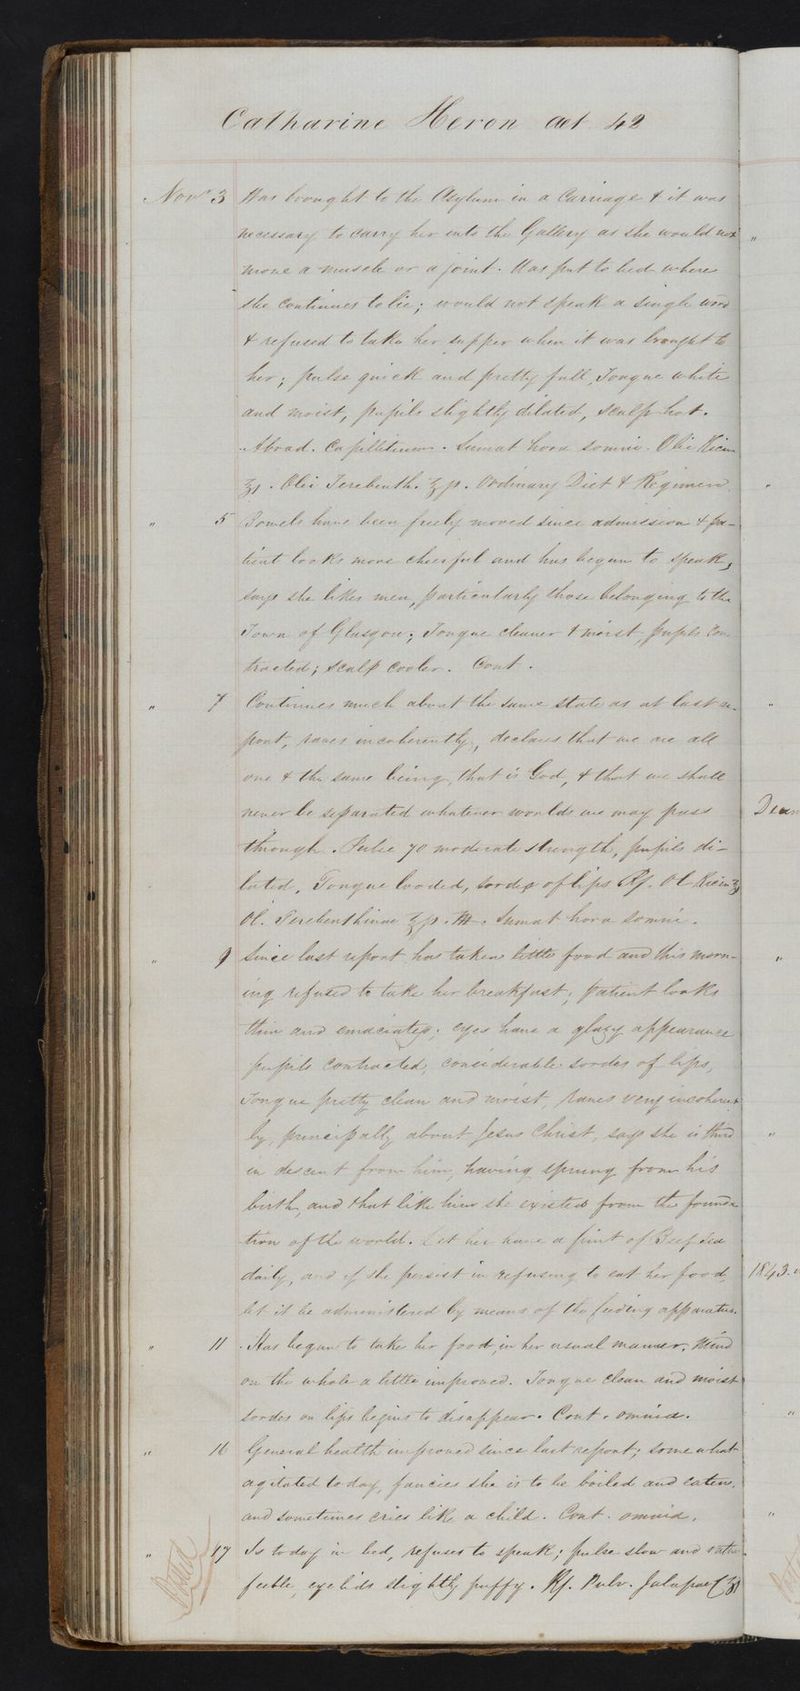 Catharine Heron aet. 42
Novr 3 Was brought to the Asylum in a Carriage & it was
necessary to carry her into the Gallery as she would not
move a muscle or a joint. Was put to bed where
she continues to lie; would not speak a single word
& refused to take her supper when it was brought to
her; pulse quick and pretty full, Tongue white
and moist, pupils slightly dilated, scalp hot.
Abrad. Capillitium. Sumat hora somni. Olei Ricini
ʒj. Olei Terebinth. ʒß. Ordinary Diet & Regimen.
" 5 Bowels have been freely moved since admission & pa-
tient looks more cheerful and has begun to speak,
says she likes men, particularly those belonging to the
Town of Glasgow; Tongue cleaner & moist, pupils con-
tracted; scalp cooler. Cont.
" 7 Continues much about the same state as at last re-
port, raves incoherently, declares that we are all
one & the same being, that is God, & that we shall
never be separated whatever worlds we may pass
through. Pulse 70 moderate strength, pupils di-
lated, Tongue loaded, sordes of lips Rx. Ol. Ricini ʒj
Ol. Terebinthinae ʒß. M. Sumat hora somni.
" 9 Since last report has taken little food and this morn-
ing refused to take her breakfast; patient looks
thin and emaciated; eyes have a glazy appearance
pupils contracted, considerable sordes of lips,
Tongue pretty clean and moist, raves very incoherent
ly, principally about Jesus Christ, says she is third
in descent from him, having sprung from his
birth, and that like him she existed from the founda
tion of the world. Let her have a pint of Beef Tea
daily, and if she persist in refusing to eat her food,
let it be administered by means of the feeding apparatus.
" 11 Has began to take her food in her usual manner. Mind
on the whole a little improved. Tongue clean and moist
sordes on lips begins to disappear. Cont. omnia.
" 16 General health improved since last report; somewhat
agitated to day, fancies she is to be boiled and eaten,
and sometimes cries like a child. Cont. omnia.
" 17 Is to day in bed, refuses to speak; pulse slow and rather
feeble, eyelids slightly puffy. Rx. Pulv. Jalapae C
1843